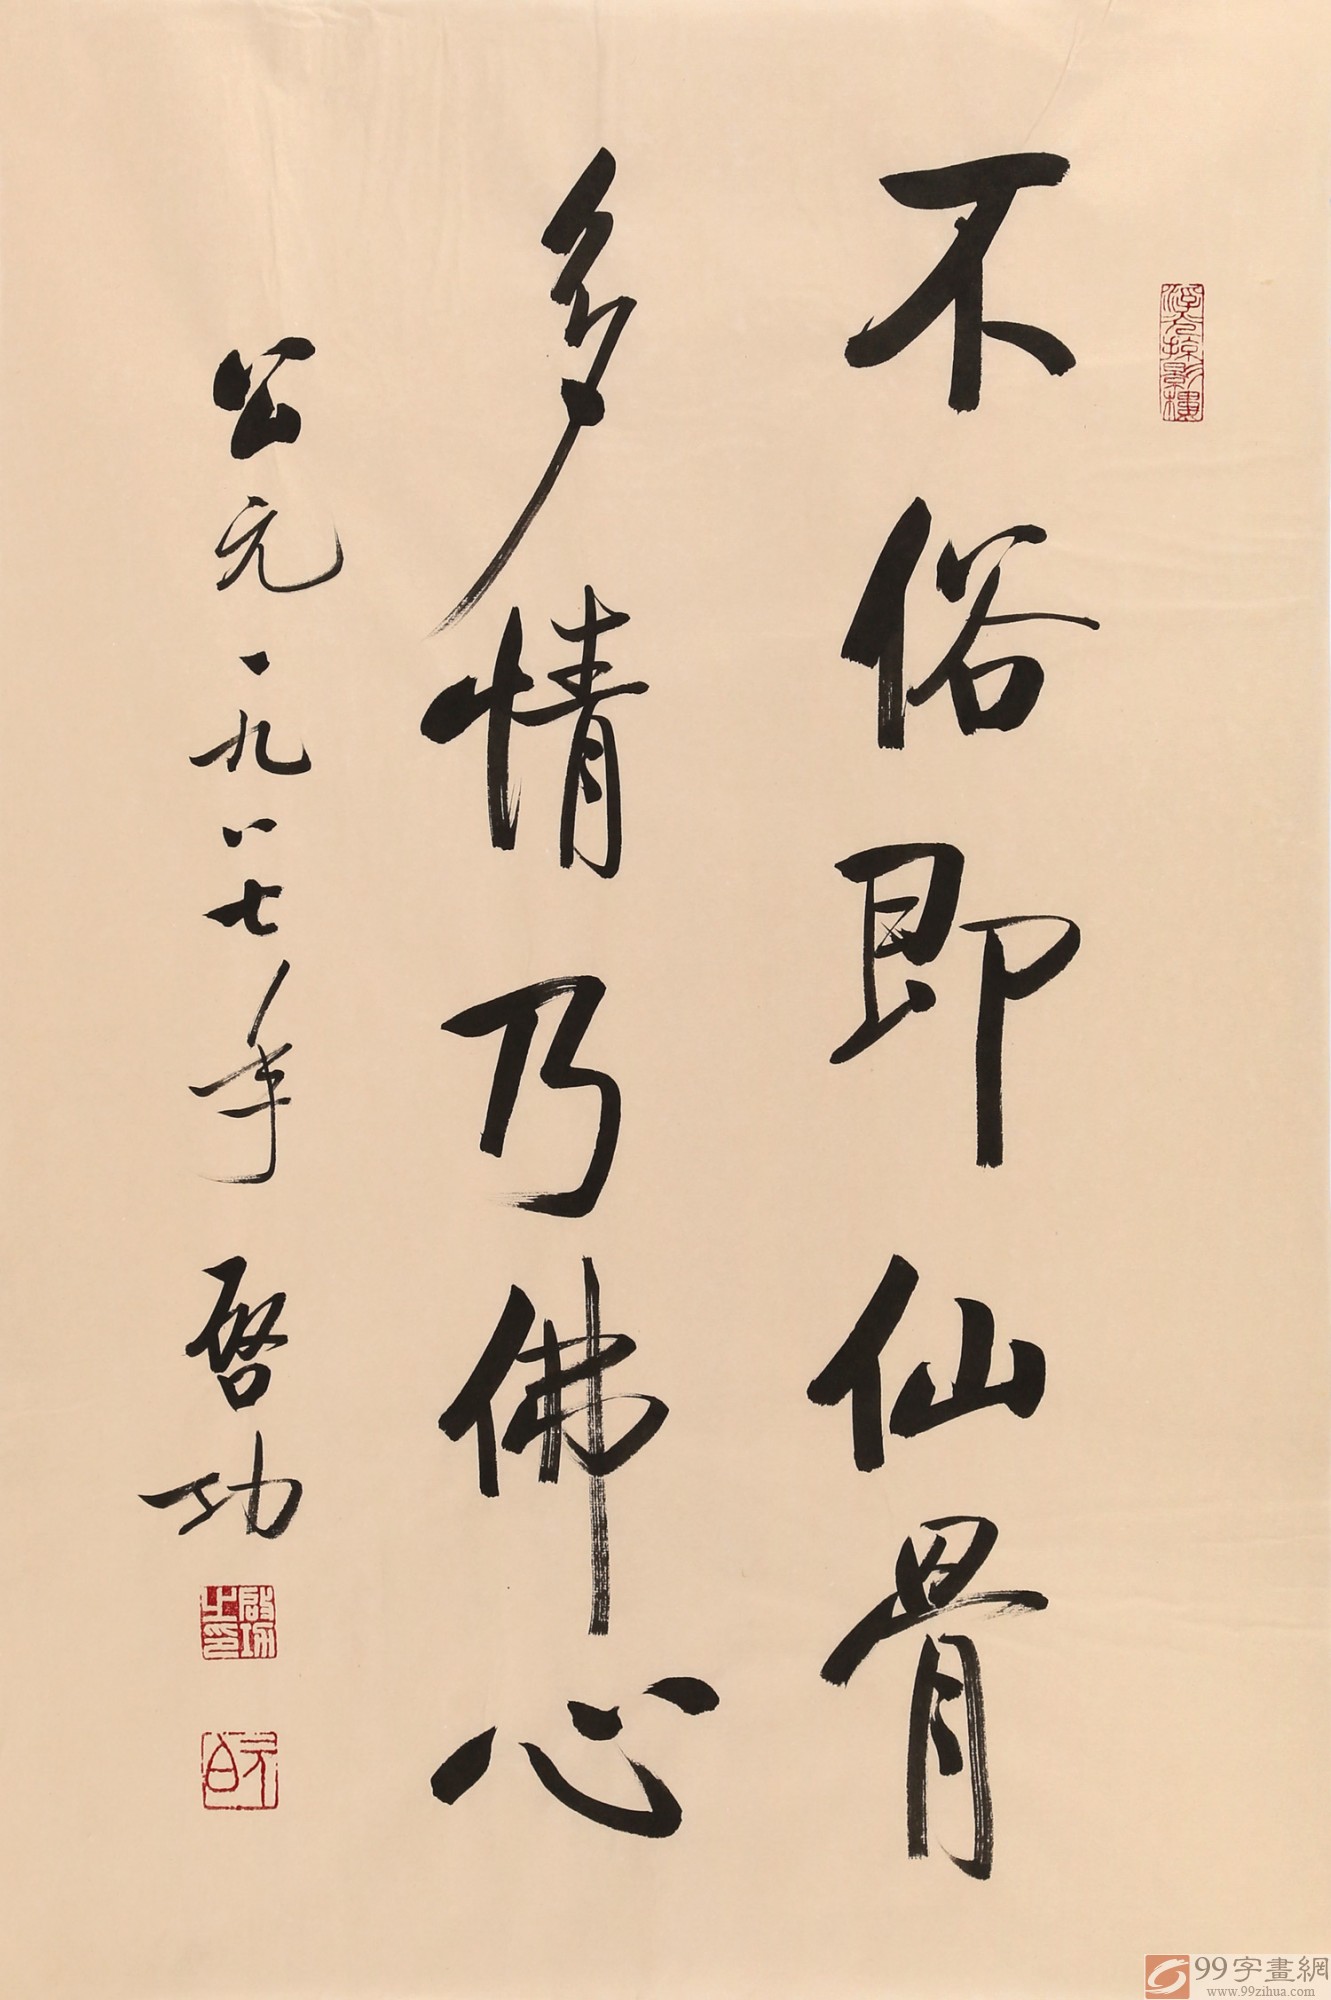 不俗即仙骨
多情乃佛心
公元一九八七年 啓功
浮光掠影樓
啟功之印
元白
99字畫網
www.99zihua.com